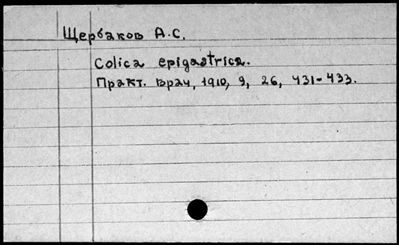 Щербаков А.С.
Colica epigastrica.
Практ. врач, 1910, 9, 26, 431-433.